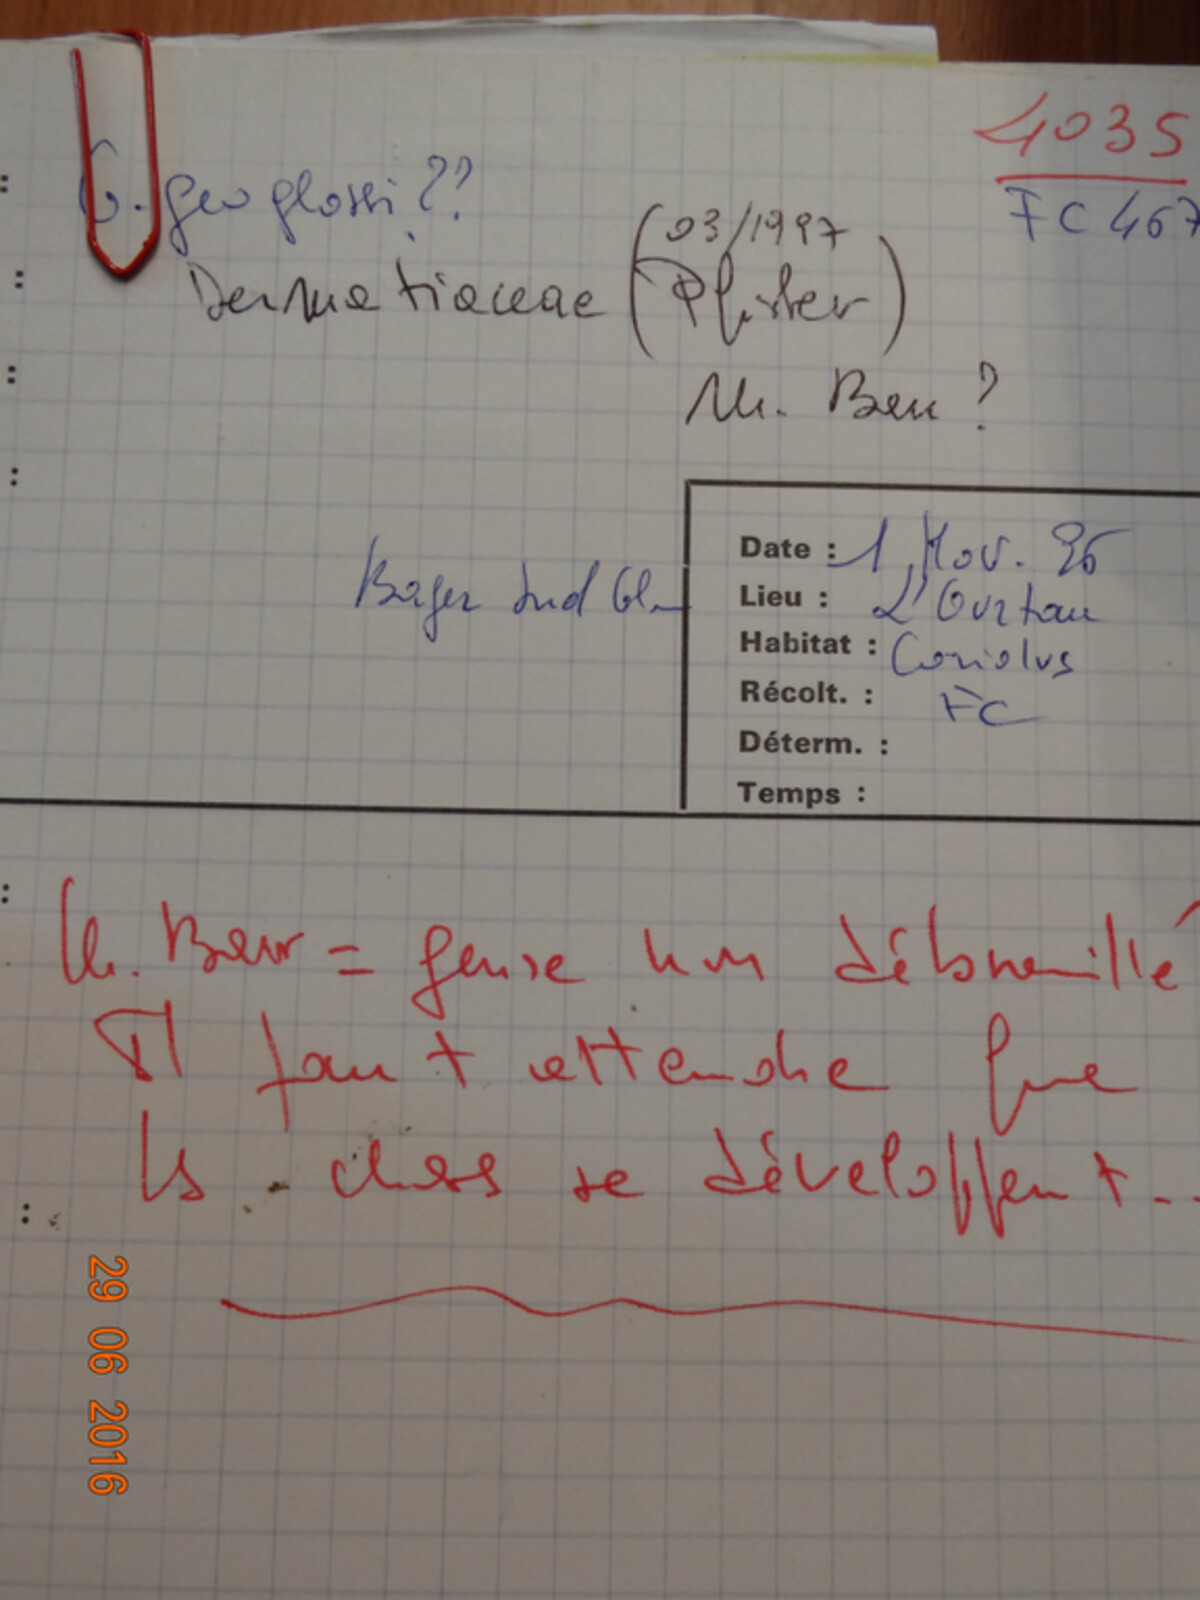 4035
FC 467
G. geoglossi ??
(03/1997
Dermatiaceae (Pfister)
Ben ?
Date : 1 Nov. 96
Lieu : L'Ourtau
Habitat : Coriolus
Récolt. : FC
Déterm. :
Temps :
= genre non débrouillé
Il faut attendre que
ls choses se développent..
29 06 2016